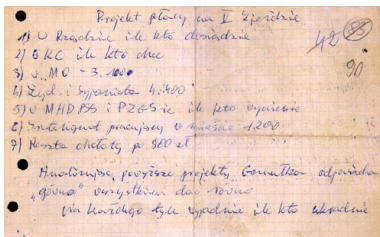 Projekt płacy na V Zjeździe
1) w Rządzie ile kto dosiądzie
2) w KC ile kto chce
3) w MO - 3.000
4) Żyd i Syjonista 4.400
5) w MHD, PSS i PZGS-ie ile kto wyniesie
6) Inteligent pracujący w mieście 1.200
7) Reszta chołoty po 960 zł
Analizując powyższe projekty Gomułka odpowiada
„gówno" wszystkim dać równo
na każdego tyle wypadnie ile kto ukradnie
42
90